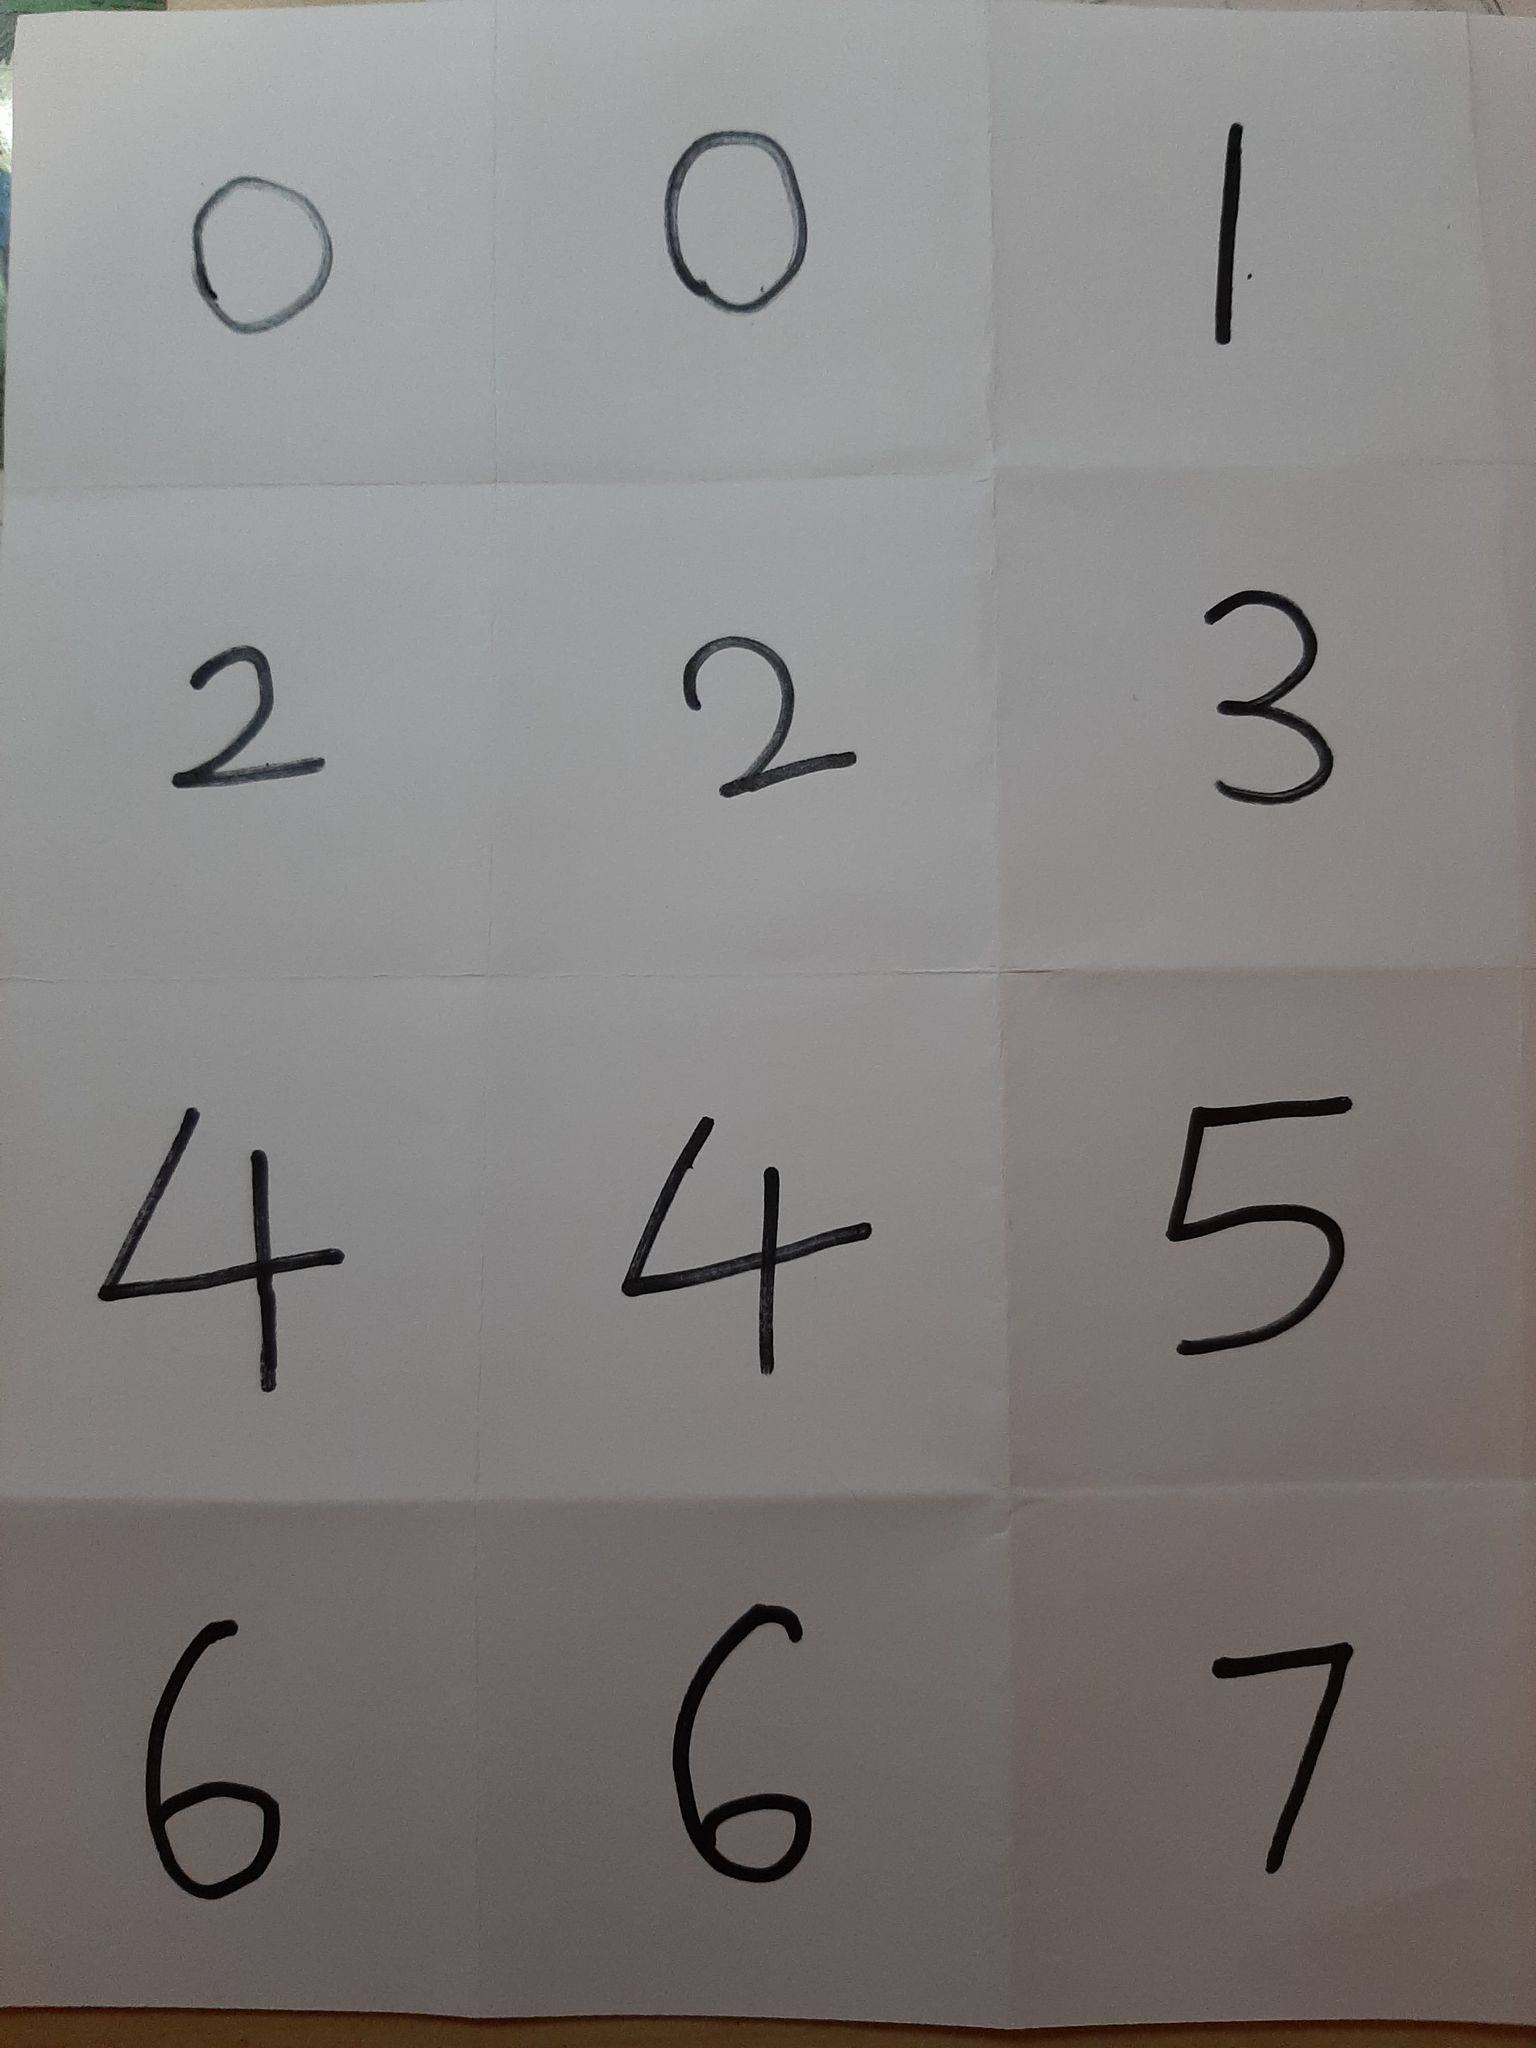 0 0 1
2 2 3
4 4 5
6 6 7